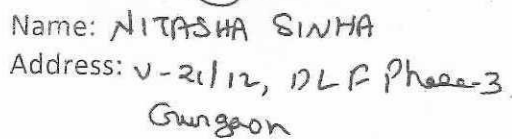 Name: NITASHA SINHA
Address: V-21/12, DLF Phase-3
Gurgaon